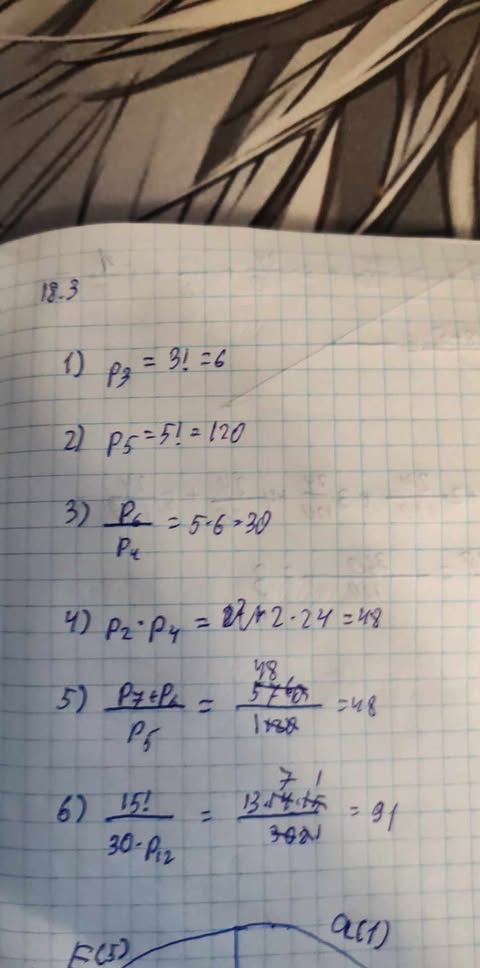 18.3
1) P3 = 3! = 6
2) P5 = 5! = 120
3) P6/P4 = 5·6=30
4) P2·P4 = 2·24 = 48
5) (P7+P6)/P5 = 48 = 48
6) 15!/(30·P12) = 13·14·15 7 1/30 = 91
F(5) a(1)